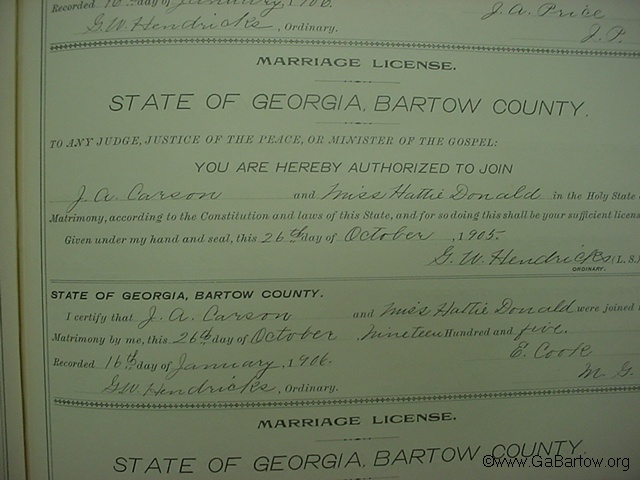 Recorded 16th day of January, 1906.
J. A. Price
G. W. Hendricks, Ordinary.
J. P.
MARRIAGE LICENSE.
STATE OF GEORGIA, BARTOW COUNTY.
TO ANY JUDGE, JUSTICE OF THE PEACE, OR MINISTER OF THE GOSPEL:
YOU ARE HEREBY AUTHORIZED TO JOIN
J. A. Carson and Miss Hattie Donald in the Holy State
Matrimony, according to the Constitution and laws of this State, and for so doing this shall be your sufficient licens
Given under my hand and seal, this 26th day of October, 1905.
G. W. Hendricks (L. S.)
ORDINARY.
STATE OF GEORGIA, BARTOW COUNTY.
I certify that J. A. Carson and Miss Hattie Donald were joined
Matrimony by me, this 26th day of October Nineteen Hundred and five.
Recorded 16th day of January, 1906.
E. Cook
G. W. Hendricks, Ordinary.
M. G.
MARRIAGE LICENSE.
STATE OF GEORGIA, BARTOW COUNTY.
©www.GaBartow.org